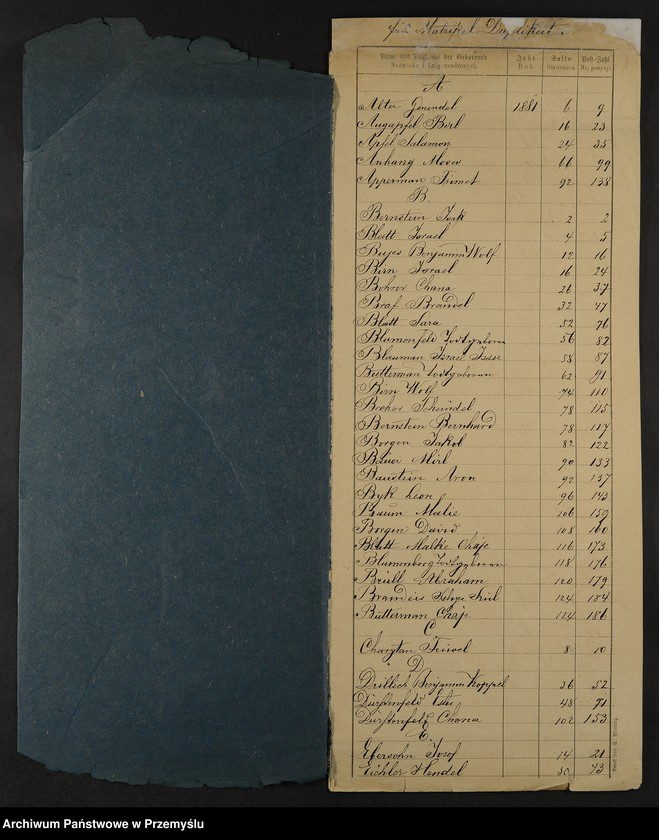 für Matrikel Dzikow
Name und Vorname der Geborenen
Nazwisko i Imię urodzonych
Jahr
Rok
Seite
Stronnica
Post-Zahl
Nr. pozycyi
A
Alter Gnendel 1881 6 9
Augapfel Berl 16 23
Apfel Salamon 24 35
Anhang Moses 66 99
Apperman Frimet 92 138
B
Bernstein 2 2
Blatt Israel 4 5
Benjamin Wolf 12 16
Birn Israel 16 24
Bohrer Chana 26 37
Braf Brandel 32 47
Blatt Sara 52 76
Blumenfeld Todtgeboren 56 82
Blauman Israel Isser 58 87
Butterman Todtgeboren 62 91
Birn Wolf 74 110
Becher Scheindel 78 115
Bernstein Bernhard 78 117
Borgen Jakob 82 122
Bauer Mirl 90 133
Baustein Aron 92 137
Byk Leon 96 143
Baum Malie 106 159
Borgen David 108 160
Blatt Malke Chaje 116 173
Blumenberg Todtgeboren 118 176
Brüll Abraham 120 179
Brandeis 124 184
Butterman Chaje 124 186
C
Charytan Feiwel 8 10
D
Drillich Benjamin Koppel 36 52
Durstenfeld Ester 48 71
Durstenfeld Chana 102 153
E
Ebersohn Josef 14 21
Eichler Hendel 50 73
Archiwum Państwowe w Przemyślu